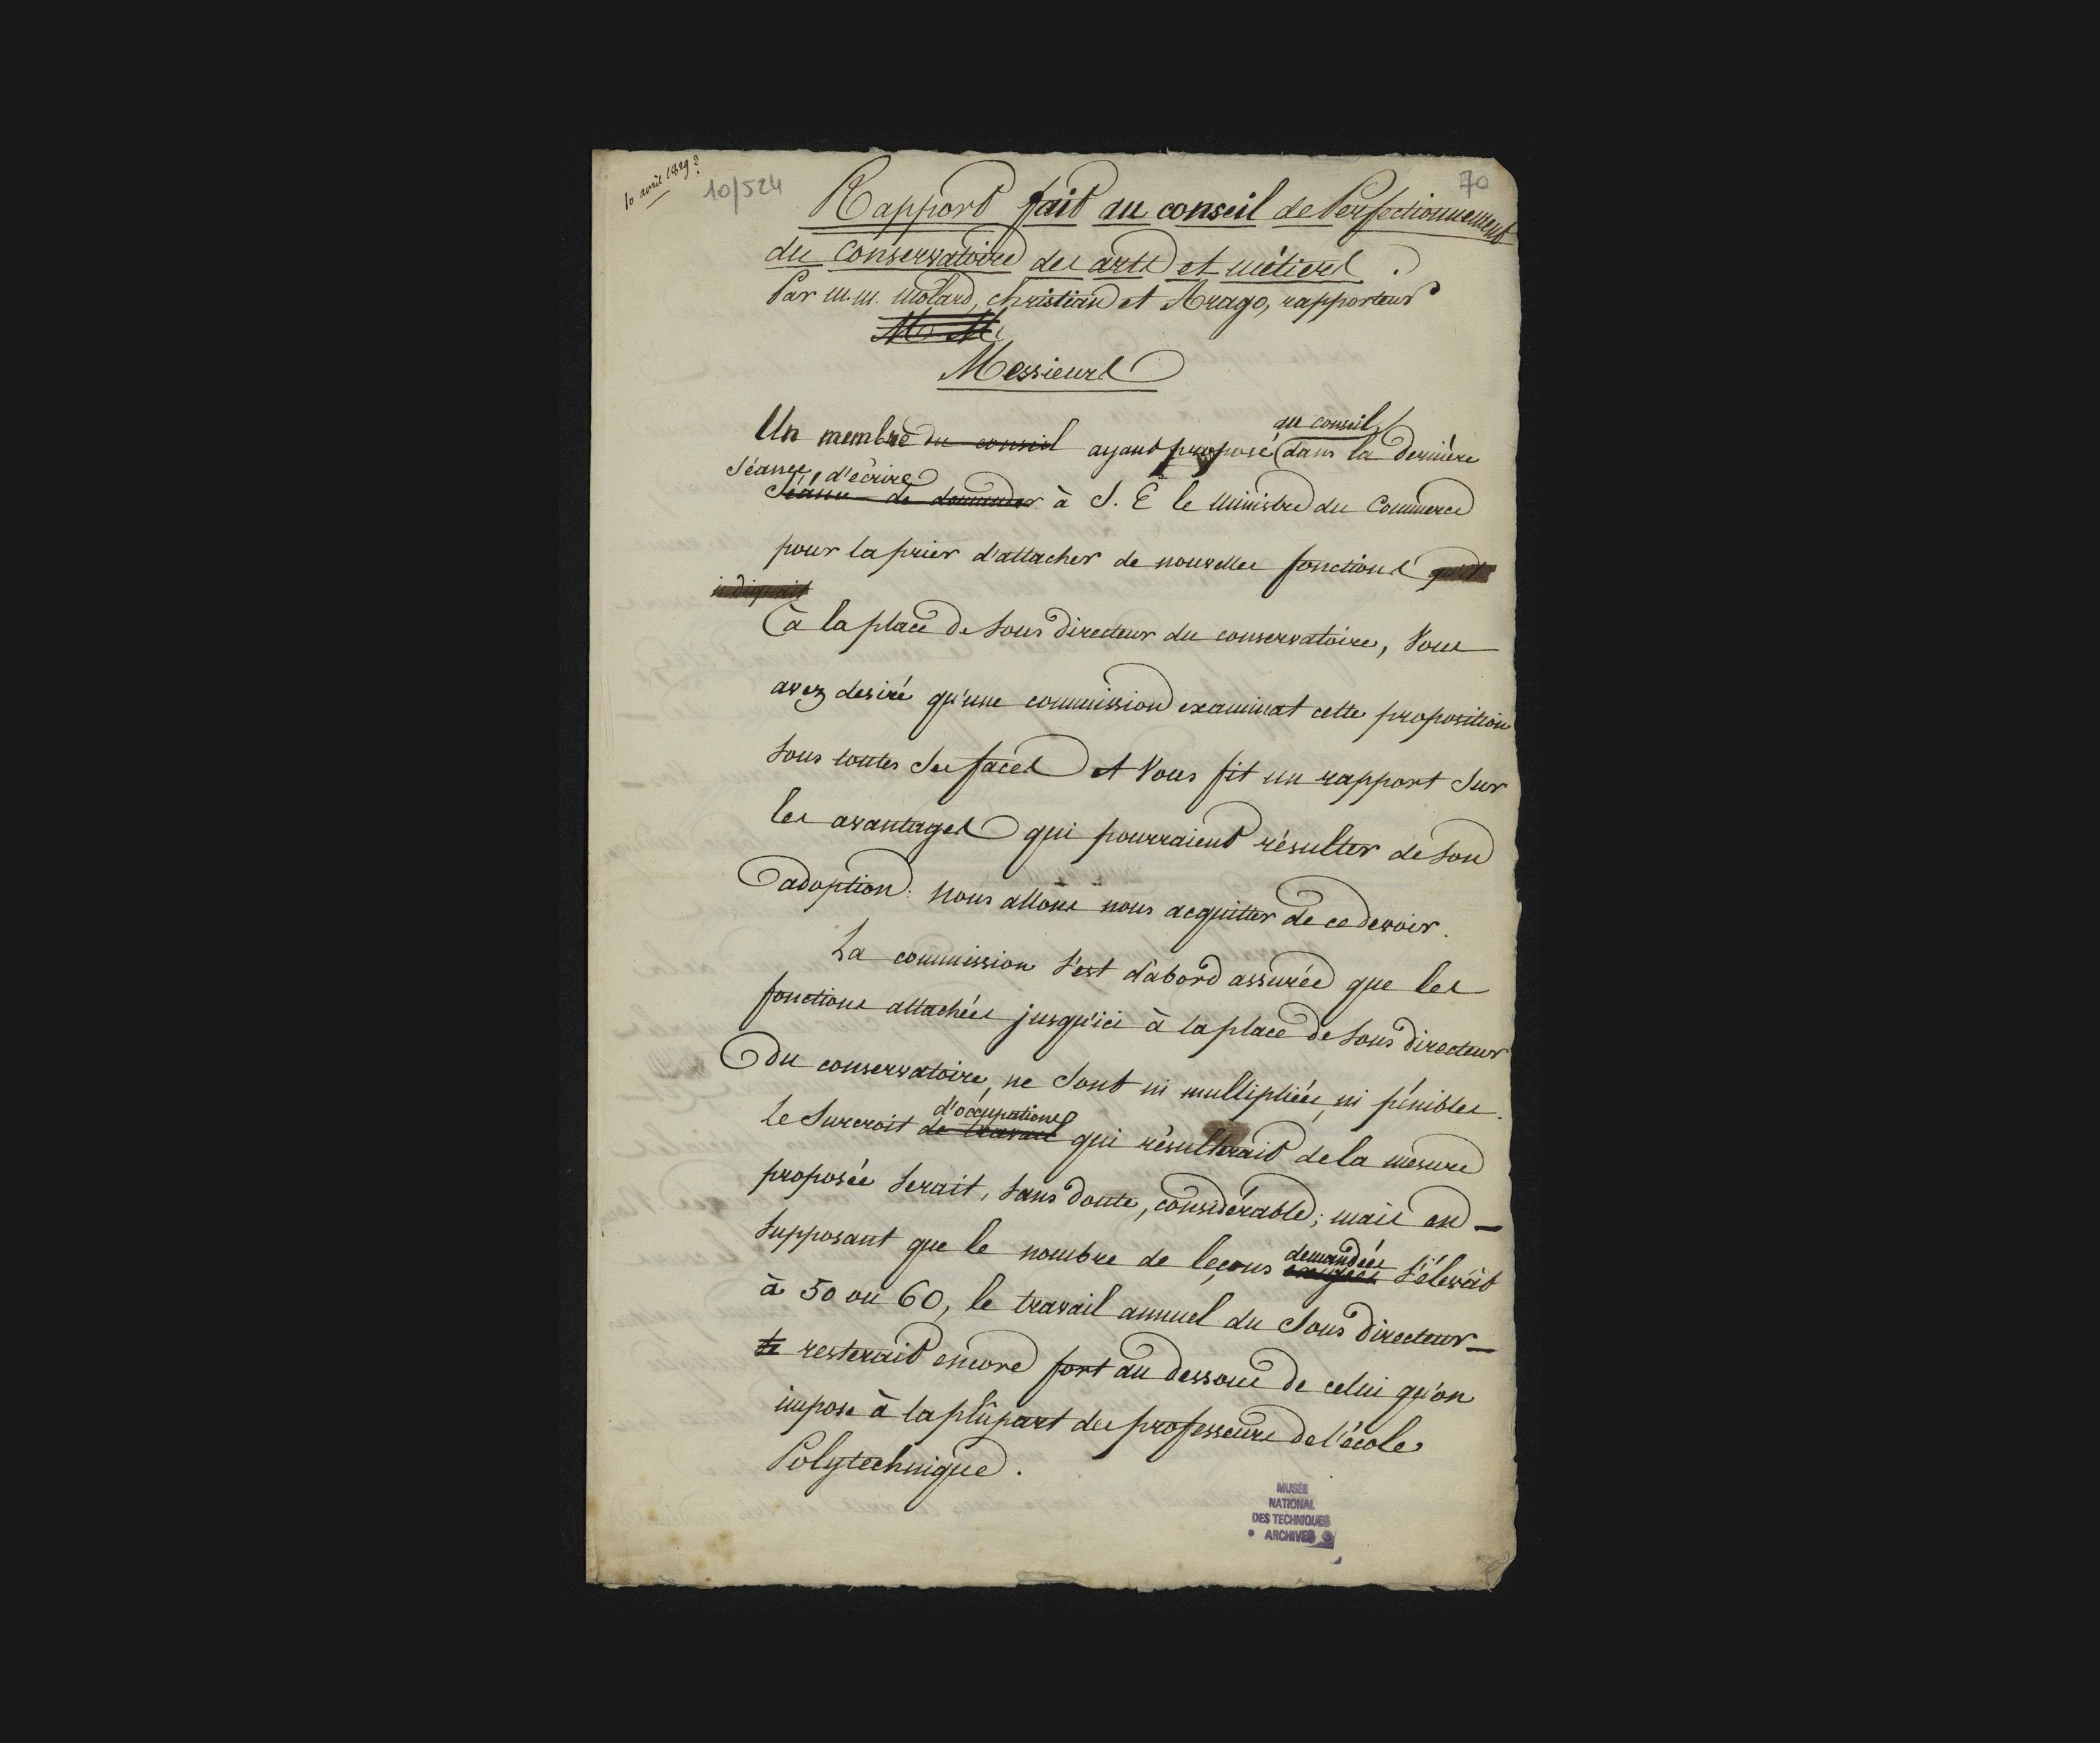 10 avril 1829?
10/524
70
Rapport fait au conseil de Perfectionnement
du Conservatoire des arts et métiers.
Par M.M. Molard, Christian et Arago, rapporteur
M. M.
Messieurs
au conseil
Un membre du conseil ayant proposé dans la dernière
séance d'écrire
séance de demander à S. E le Ministre du Commerce
pour la prier d'attacher de nouvelles fonctions qu'il
indiquait
à la place de sous directeur du conservatoire, vous
avez desiré qu'une commission examinat cette proposition
sous toutes ses faces et vous fit un rapport sur
les avantages qui pourraient résulter de son
adoption. Nous allons nous acquitter de ce devoir.
La commission s'est d'abord assurée que les
fonctions attachées jusqu'ici à la place de sous directeur
du conservatoire, ne sont ni multipliées, ni pénibles.
d'occupations
le surcroit de travail qui résulterait de la mesure
proposée serait, sans doute, considérable; mais en
demandées
supposant que le nombre de leçons exigées s'élevât
à 50 ou 60, le travail annuel du sous directeur
te resterait encore fort au dessous de celui qu'on
impose à la plûpart des professeurs de l'école
Polytechnique.
MUSÉE
NATIONAL
DES TECHNIQUES
• ARCHIVES •